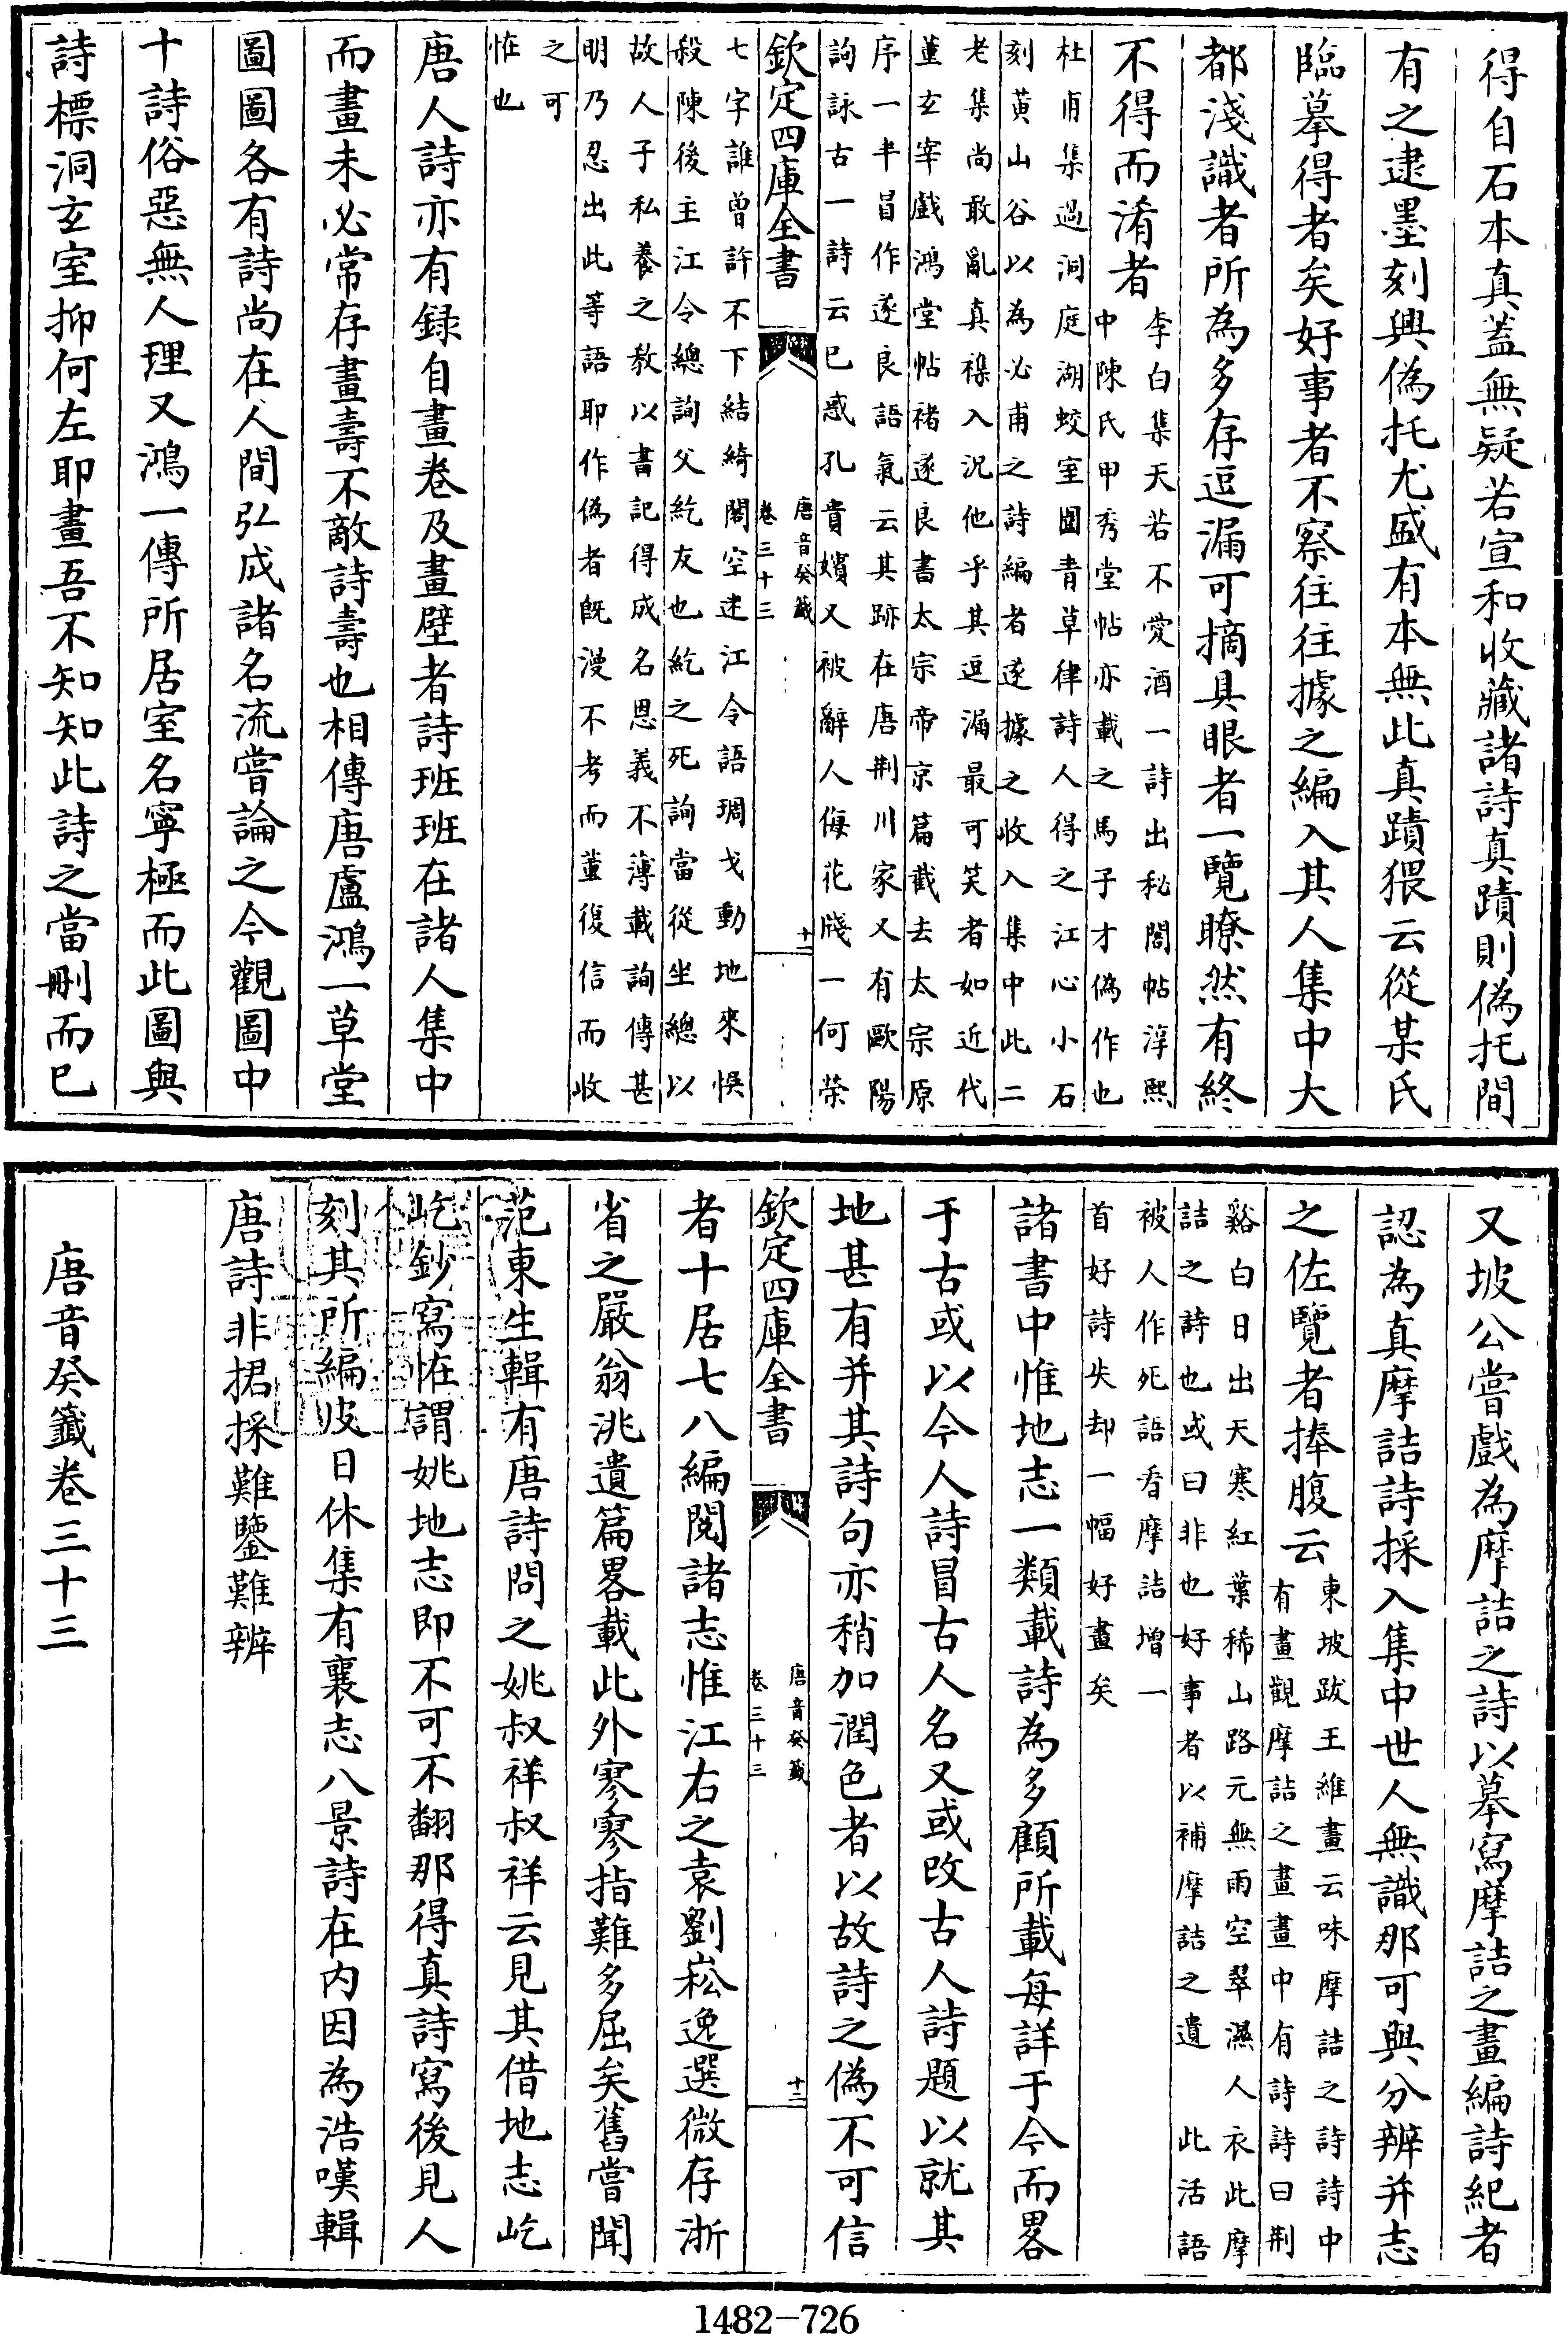 得自石本真蓋無疑若宣和收藏諸詩真蹟則偽托間
有之逮墨刻興偽托尤盛有本無此真蹟猥云從某氏
臨摹得者矣好事者不察往往據之編入其人集中大
都淺識者所為多存逗漏可摘具眼者一覽瞭然有終
不得而淆者
李白集天若不愛酒一詩出秘閣帖淳熙
中陳氏甲秀堂帖亦載之馬子才偽作也
杜甫集過洞庭湖蛟室圍青草律詩人得之江心小石
刻黃山谷以為必甫之詩編者遂據之收入集中此二
老集尚敢亂真襍入況他乎其逗漏最可笑者如近代
董玄宰戲鴻堂帖褚遂良書太宗帝京篇截去太宗原
序一半冒作遂良語氣云其跡在唐荆川家又有歐陽
詢詠古一詩云已惑孔貴嬪又被辭人侮花牋一何榮
欽定四庫全書
唐音癸籤
卷三十三
十一
七字誰曾許不下結綺閣空迷江令語琱戈動地來悞
殺陳後主江令總詢父紇友也紇之死詢當從坐總以
故人子私養之教以書記得成名恩義不薄載詢傳甚
明乃忍出此等語耶作偽者旣漫不考而董復信而收
之可
怪也
唐人詩亦有録自畫卷及畫壁者詩班班在諸人集中
而畫未必常存畫壽不敵詩壽也相傳唐盧鴻一草堂
圖圖各有詩尚在人間弘成諸名流嘗論之今觀圖中
十詩俗惡無人理又鴻一傳所居室名寧極而此圖與
詩標洞玄室抑何左耶畫吾不知知此詩之當刪而已
又坡公嘗戲為摩詰之詩以摹寫摩詰之畫編詩紀者
認為真摩詰詩採入集中世人無識那可與分辨并志
之佐覽者捧腹云
東坡跋王維畫云味摩詰之詩詩中
有畫觀摩詰之畫畫中有詩詩曰荆
谿白日出天寒紅葉稀山路元無雨空翠濕人衣此摩
詰之詩也或曰非也好事者以補摩詰之遺 此活語
被人作死語看摩詰增一
首好詩失却一幅好畫矣
諸書中惟地志一類載詩為多顧所載每詳于今而畧
于古或以今人詩冒古人名又或改古人詩題以就其
地甚有并其詩句亦稍加潤色者以故詩之偽不可信
欽定四庫全書
唐音癸籤
卷三十三
十二
者十居七八編閱諸志惟江右之袁劉崧逸選微存浙
省之嚴翁洮遺篇畧載此外寥寥指難多屈矣舊嘗聞
范東生輯有唐詩問之姚叔祥叔祥云見其借地志屹
屹鈔寫怪謂姚地志即不可不翻那得真詩寫後見人
刻其所編皮日休集有襄志八景詩在内因為浩嘆輯
唐詩非捃採難鑒難辨
唐音癸籤卷三十三
1482-726